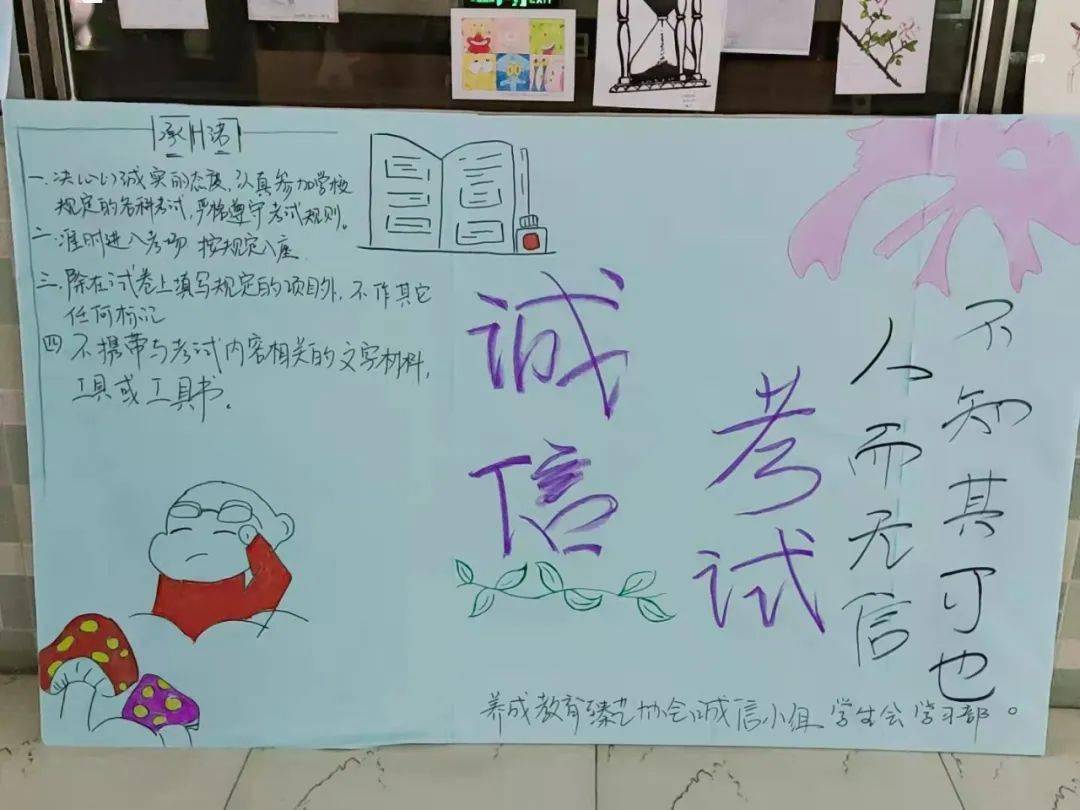 承诺
一.决心以诚实的态度,认真参加学校
规定的各科考试,严格遵守考试规则。
二.准时进入考场 按规定入座
三.除在试卷上填写规定的项目外,不作其它
任何标记
四 不携带与考试内容相关的文字材料,
工具或工具书。
诚信
考试
人而无信
不知其可也
养成教育臻艺协会诚信小组 学生会学习部。
EXIT